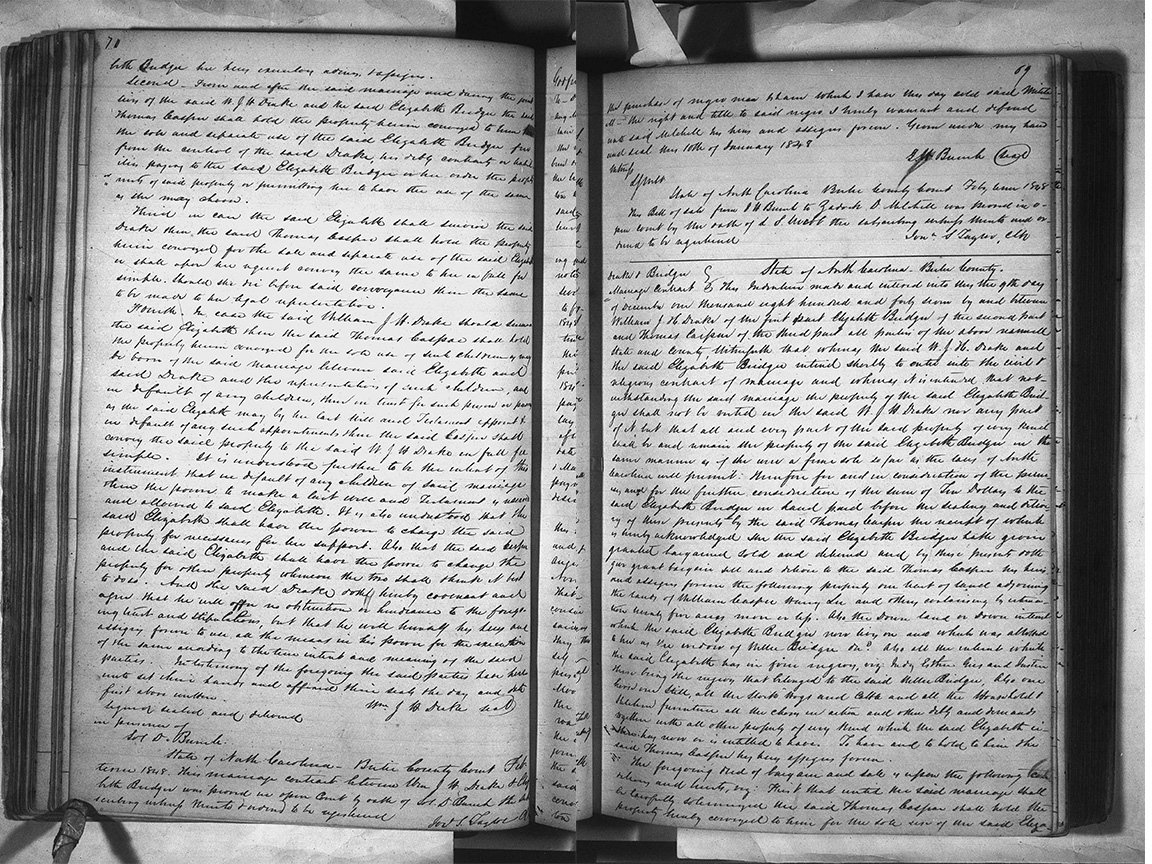 70
beth Bridger her heirs executors admrs & assigns.
Second. From and after the said marriage and during the joint
lives of the said W. J. H. Drake and the said Elizabeth Bridger the said
Thomas Casper shall hold the property herein conveyed to him for
the sole and separate use of the said Elizabeth Bridger free
from the control of the said Drake, his debts contracts or liabil
ities paying to the said Elizabeth Bridger or her order the profits
rents of said property or permitting her to have the use of the same
as she may choose.
Third in case the said Elizabeth shall survive the said
Drake then, the said Thomas Casper shall hold the property
herein conveyed for the sole and separate use of the said Elizabeth
or shall upon her request convey the same to her in full fee
simple. Should she die before said conveyance then the same
to be made to her legal representatives.
Fourth. In case the said William J. H. Drake should survive
the said Elizabeth then the said Thomas Casper shall hold
the property herein conveyed for the sole use of such children as may
be born of the said marriage between said Elizabeth and
said Drake and the representatives of such children, and
in default of any children, then in trust for such person or persons
as the said Elizabeth may by her last Will and Testament appoint &
in default of any such appointment then the said Casper shall
convey the said property to the said W J H Drake in full fee
simple. It is understood further to be the intent of this
instrument that in default of any children of said marriage
then the power to make a last will and Testament is reserved
and allowed to said Elizabeth. It is also understood that the
said Elizabeth shall have the power to charge the said
property for necessaries for her support. Also that the said Casper
and the said Elizabeth shall have the power to change the
property for other property whenever the two shall think it best
to do so. And the said Drake doth hereby covenant and
agree that he will offer no obstruction or hindrance to the forego-
ing trust and stipulations, but that he will himself his heirs and
assigns forever to use all the means in his power for the execution
of the same according to the true intent and meaning of the said
parties. In testimony of the foregoing the said parties have here
unto set their hands and affixed their seals the day and date
first above written. Wm J H Drake seal
Signed sealed and delivered
in presence of
Sol D. Bunch.
State of North Carolina - Bertie County Court Feb
term 1848. This marriage contract between Wm J H Drake & Eliza
beth Bridger was proved in open Court by oath of Sol D. Bunch the sub
scribing witness thereto & ordered to be registered
Jon. S. Taylor
69
the purchase of negro man Isham which I have this day sold said Mitche
ll - the right and title to said negro I hereby warrant and defend
unto said Mitchell his heirs and assigns forever. Given under my hand
and seal this 10th of January 1848
Witness W Bunch (seal)
State of North Carolina Bertie County Court Feby term 1848
This Bill of sale from W Bunch to Zadock D. Mitchell was proved in o-
pen court by the oath of L. S. Webb the subscribing witness thereto and or-
dered to be registered
Jon. S Taylor, Clk
Drake & Bridger State of North Carolina. Bertie County.
Marriage Contract This Indenture made and entered into this the 9th day
of December one thousand eight hundred and forty seven by and between
William J. H. Drake of the first part Elizabeth Bridger of the second part
and Thomas Casper of the third part all parties of the above named
State and County Witnesseth that whereas the said W. J. H. Drake and
the said Elizabeth Bridger intend shortly to enter into the civil &
religious contract of marriage and whereas it is intended that not-
withstanding the said marriage the property of the said Elizabeth Brid-
ger shall not be vested in the said W. J. H Drake nor any part
of it but that all and every part of the said property of every kind
shall be and remain the property of the said Elizabeth Bridger in the
same manner as if she were a feme sole so far as the laws of North
Carolina will permit: Therefore for and in consideration of the premi
ses and for the further consideration of the sum of Ten Dollars to the
said Elizabeth Bridger in hand paid before the sealing and deliver
y of these presents by the said Thomas Casper the receipt of which
is hereby acknowledged she the said Elizabeth Bridger hath given
granted bargained sold and delivered and by these presents doth
give grant bargain sell and deliver to the said Thomas Casper his heirs
and assigns forever the following property one tract of land adjoining
the lands of William Casper Henry Lee and others containing by estima-
tion twenty five acres more or less. Also the Dower land or dower interest
which the said Elizabeth Bridger now lives on and which was allotted
to her as the widow of Willie Bridger decd. Also all the interest which
the said Elizabeth has in five negroes, viz: Judy Esther and
these being the negroes that belonged to the said Willie Bridger. Also one
one Still, all the stock hogs and cattle and all the Household &
Kitchen furniture all the choses in action and other debts and demands
together with all other property of every kind which the said Elizabeth
has now or is entitled to have. To have and to hold to him the
said Thomas Casper his heirs assigns forever.
The foregoing deed of bargain and sale is upon the following
and trusts, viz: First that until the said marriage shall
be lawfully solemnized the said Thomas Casper shall hold the
property hereby conveyed to him for the sole use of the said Eliza-